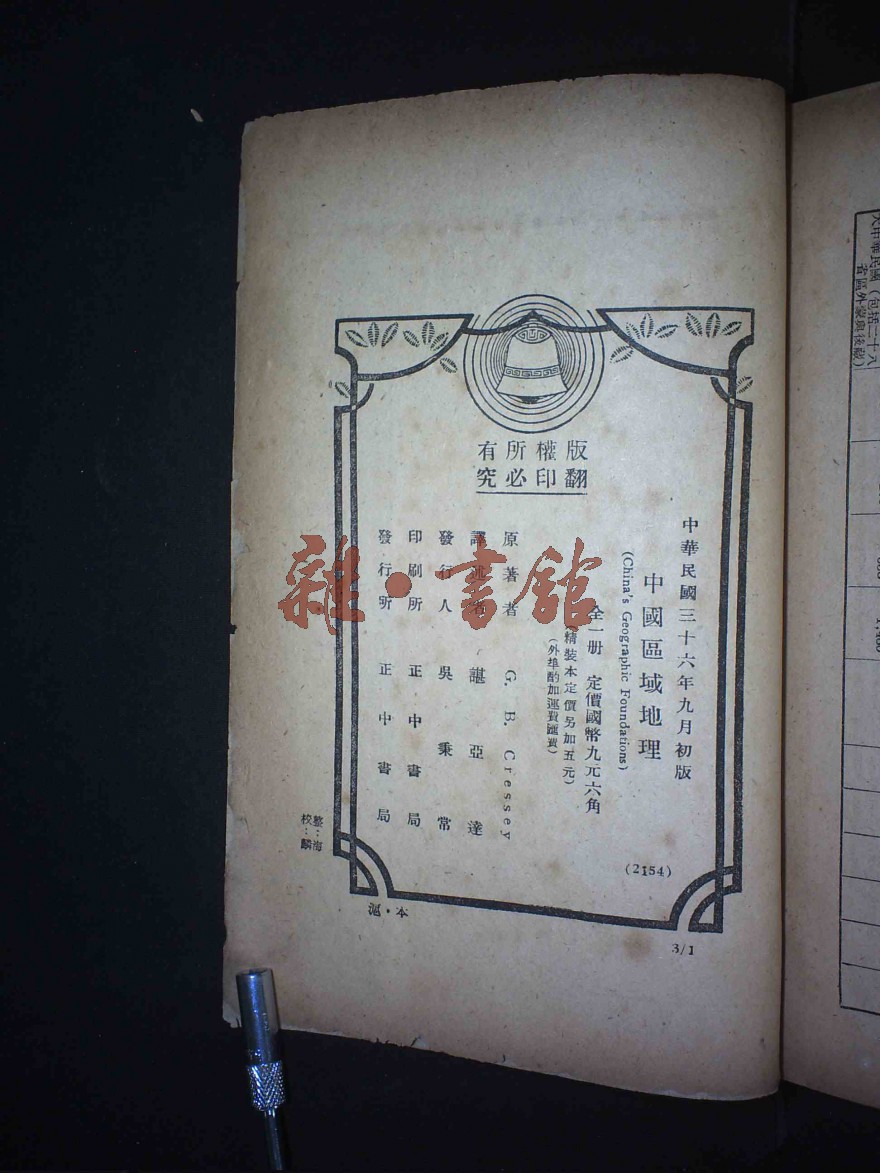 版權所有
翻印必究
中華民國三十六年九月初版
中國區域地理
(China's Geographic Foundations)
全一册 定價國幣九元六角
(精裝本定價另加五元)
(外埠酌加運費匯費)
原著者 G. B. Cressey
譯述者 諶亞達
發行人 吳秉常
印刷所 正中書局
發行所 正中書局
(2154)
整:海
校:麟
滬·本
3/1
雜·書館
大中華民國(包括二十六
省區外蒙與後藏)